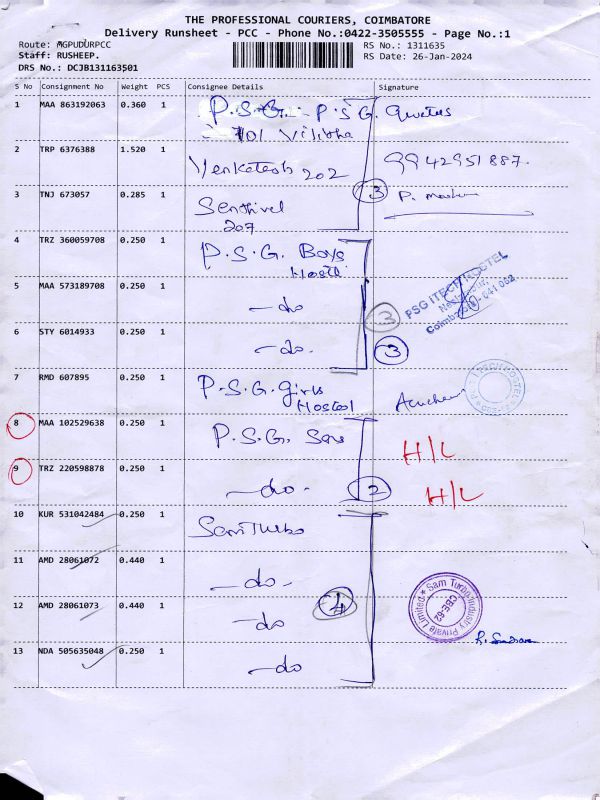 THE PROFESSIONAL COURIERS, COIMBATORE
Delivery Runsheet - PCC - Phone No.:0422-3505555 - Page No.:1
Route: MGPUDURPCC
RS No.: 1311635
Staff: RUSHEEP.
RS Date: 26-Jan-2024
DRS No.: DCJB131163501
S No Consignment No Weight PCS Consignee Details Signature
1 MAA 863192063 0.360 1 P.S.G. P.S.G. Quetus
701 Vilitha
2 TRP 6376388 1.520 1 Venketesh 202 9942951887.
3 TNJ 673057 0.285 1 Senthivel 3 P.
207
4 TRZ 360059708 0.250 1 P.S.G. Boys
Hostl
5 MAA 573189708 0.250 1 -do 3 PSG ITECH HOSTEL
Neelambur,
Coimbatore - 641 062
6 STY 6014933 0.250 1 -do. 3
7 RMD 607895 0.250 1 P.S.G. girls
Hostel
8 MAA 102529638 0.250 1 P.S.G. Sons H/L
9 TRZ 220598878 0.250 1 -do- 2 H/L
10 KUR 531042484 0.250 1 Sam Turbo
11 AMD 28061072 0.440 1 -do-
12 AMD 28061073 0.440 1 -do 4 Sam Turbo Industry Private Limited
CBE-62
13 NDA 505635048 0.250 1 -do